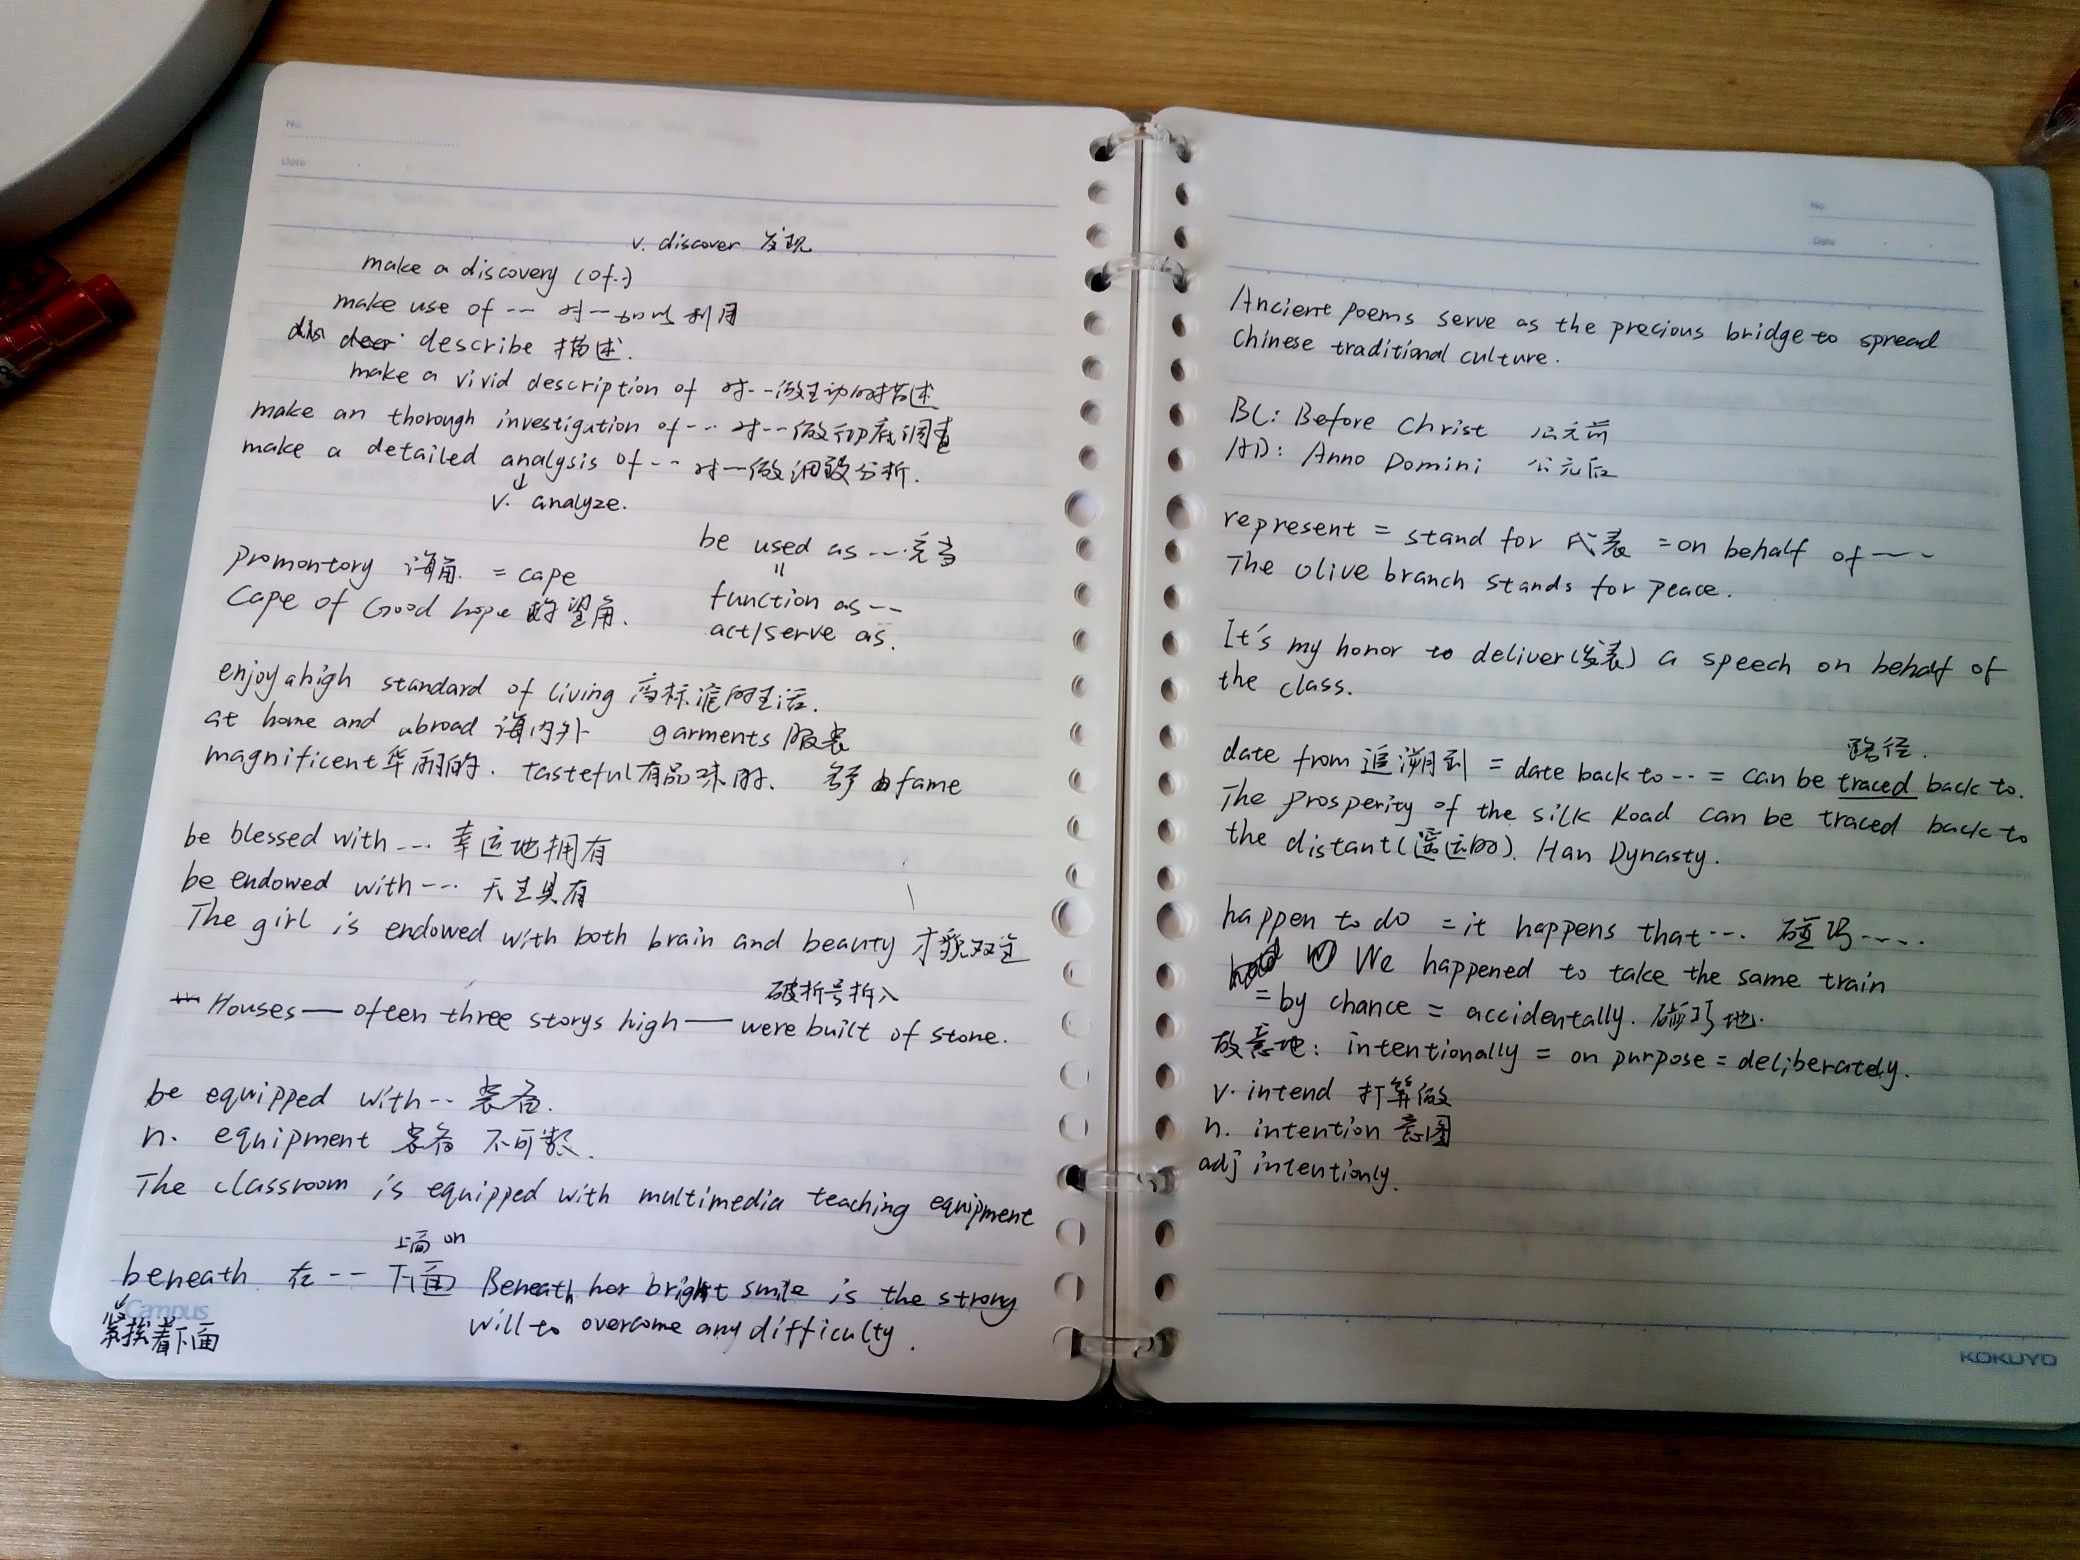 No.
Date
v. discover 发现
make a discovery (of..)
make use of --- 对--加以利用
describe 描述.
make a vivid description of 对--做生动的描述
make an thorough investigation of --- 对--做彻底调查
make a detailed analysis of --- 对--做细致分析.
↓
v. analyze.
be used as ---充当
=
function as --
act/serve as.
promontory 海角. = cape
Cape of Good hope 好望角.
enjoy a high standard of living 高标准的生活.
at home and abroad 海内外 garments 服装
magnificent 华丽的. tasteful 有品味的. fame
be blessed with --- 幸运地拥有
be endowed with --- 天生具有
The girl is endowed with both brain and beauty 才貌双全
破折号拆入
Houses — often three storys high — were built of stone.
be equipped with -- 装备.
n. equipment 装备 不可数.
The classroom is equipped with multimedia teaching equipment
上面 on
beneath 在 --- 下面 Beneath her bright smile is the strong
will to overcome any difficulty.
↓
紧挨着下面
Campus
No.
Date
Ancient poems serve as the precious bridge to spread
Chinese traditional culture.
BC: Before Christ 公元前
AD: Anno Domini 公元后
represent = stand for 代表 = on behalf of ----
The olive branch stands for peace.
It's my honor to deliver (发表) a speech on behalf of
the class.
路径.
date from 追溯到 = date back to --- = can be traced back to.
The prosperity of the silk Road can be traced back to
the distant (遥远的). Han Dynasty.
happen to do = it happens that --- 碰巧-----
We happened to take the same train
= by chance = accidentally. 碰巧地.
故意地: intentionally = on purpose = deliberately.
v. intend 打算做
n. intention 意图
adj intentionly.
KOKUYO